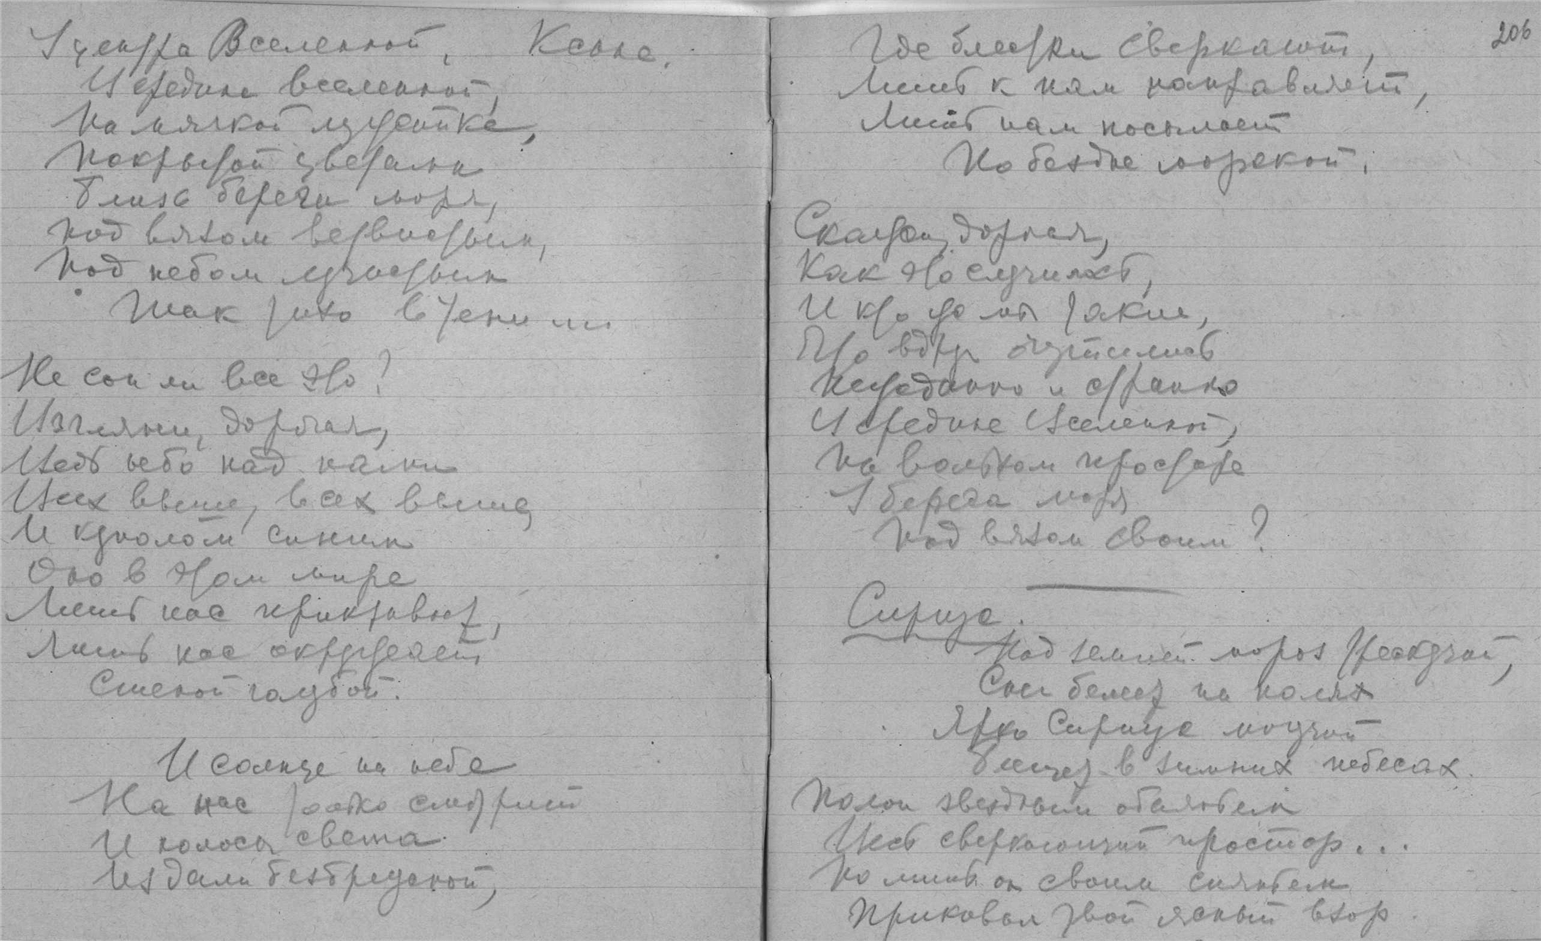 У центра Вселенной. Ксане.
В средине вселенной,
На мягкой лужайке,
Покрытой цветами
Близь берега моря,
Под вязом ветвистым,
Под небом лучистым
Так тихо в тени мы
Не сон ли все это?
Взгляни, дорогая,
Ведь небо над нами
Всех выше, всех выше,
И куполом синим
Оно в этом мире
Лишь нас прикрывает,
Лишь нас окружает
Стеной голубой.
И солнце на небе
На нас только смотрит
И полосы света
Из дали безбрежной,
206
Где блестки сверкают,
Лишь к нам направляет,
Лишь нам посылает
По бездне морской.
Скажи, дорогая,
Как это случилось,
И кто же мы такие,
Что вдруг очутились
Нежданно и странно
В средине Вселенной,
На вольном просторе
У берега моря
Под вязом своим?
Сириус.
Над землей мороз трескучий,
Снег белеет на полях
Ярко Сириус могучий
Блещет в зимних небесах.
Полон звездным обаяньем
Весь сверкающий простор...
Но лишь он своим сияньем
Приковал твой ясный взор.